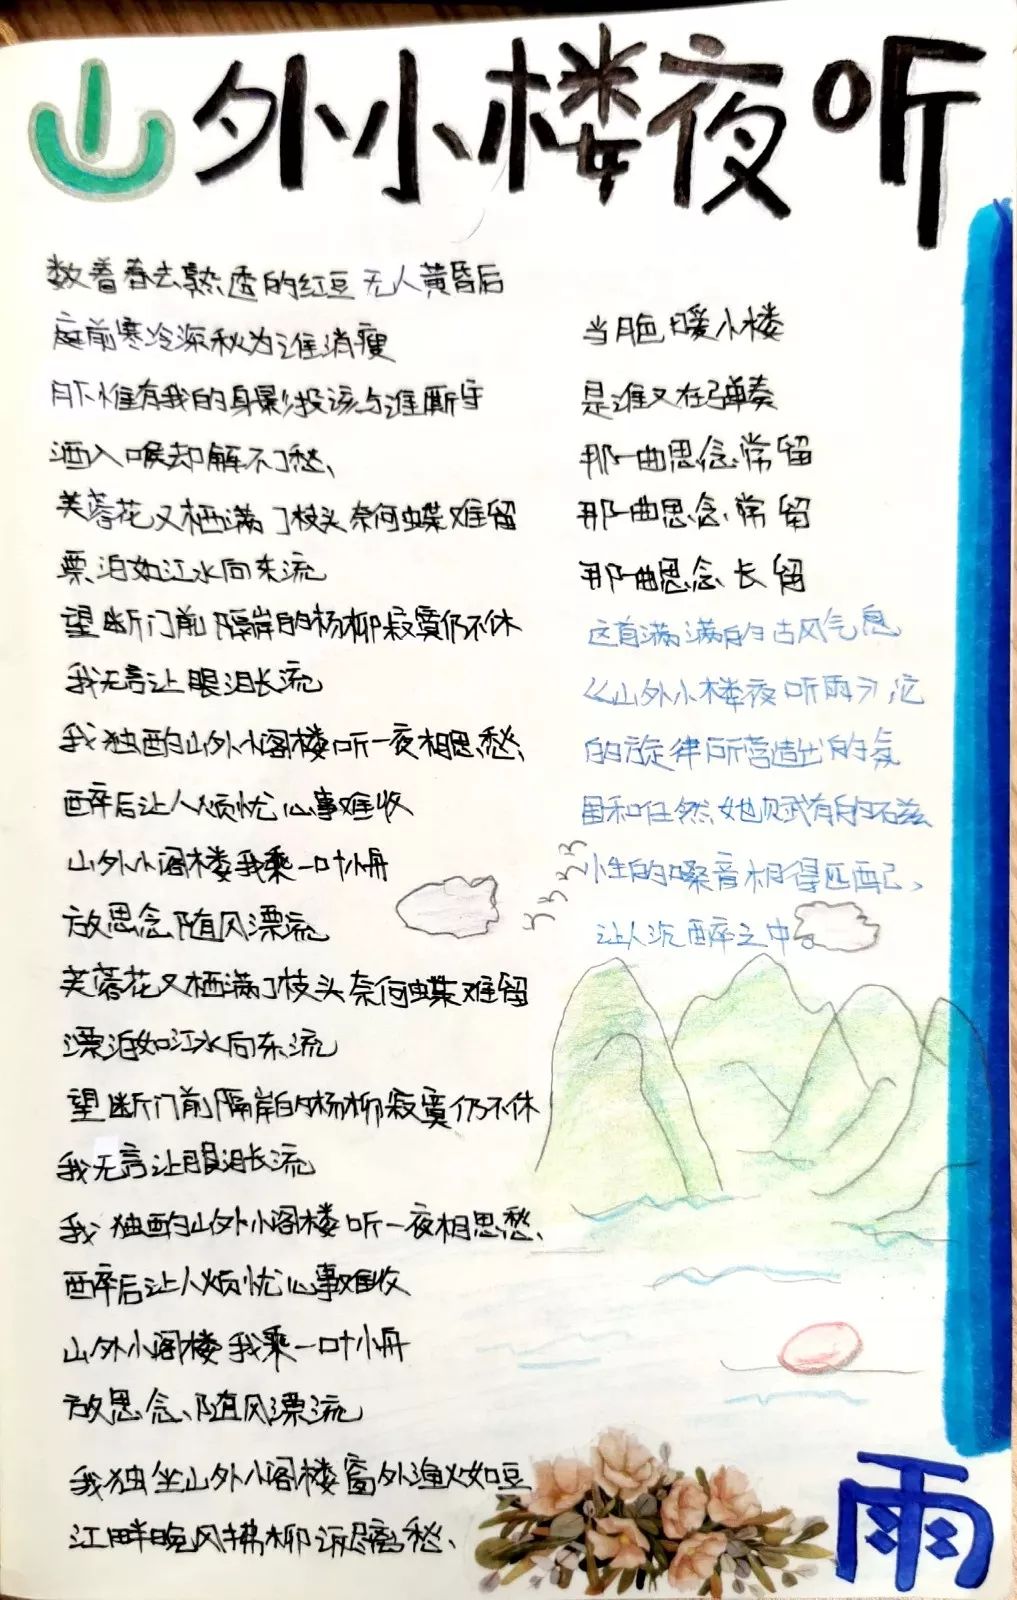 山外小楼夜听
雨
数着春去熟透的红豆 无人黄昏后
庭前寒冷深秋为谁消瘦
月下惟有我的身影投该与谁厮守
酒入喉却解不了愁、
芙蓉花又栖满了枝头奈何蝶难留
票泊如江水向东流
望断门前隔岸的杨柳寂寞仍不休
我无言让眼泪长流
我独酌山外小阁楼听一夜相思愁、
醉后让人烦忧心事难收
山外小阁楼我乘一叶小舟
放思念随风漂流
芙蓉花又栖满了枝头奈何蝶难留
漂泊如江水向东流
望断门前隔岸的杨柳寂寞仍不休
我无言让眼泪长流
我独酌山外小阁楼听一夜相思愁、
醉后让人烦忧心事难收
山外小阁楼我乘一叶小舟
放思念、随风漂流
我独坐山外小阁楼窗外渔火如豆
江畔晚风拂柳诉尽离愁、
当月色暖小楼
是谁又在弹奏
那一曲思念常留
那一曲思念常留
那一曲思念长留
这首满满的古风气息
《山外小楼夜听雨》,它
的旋律所营造出的氛
围和任然她赋有的磁
性的嗓音相得匹配,
让人沉醉之中。